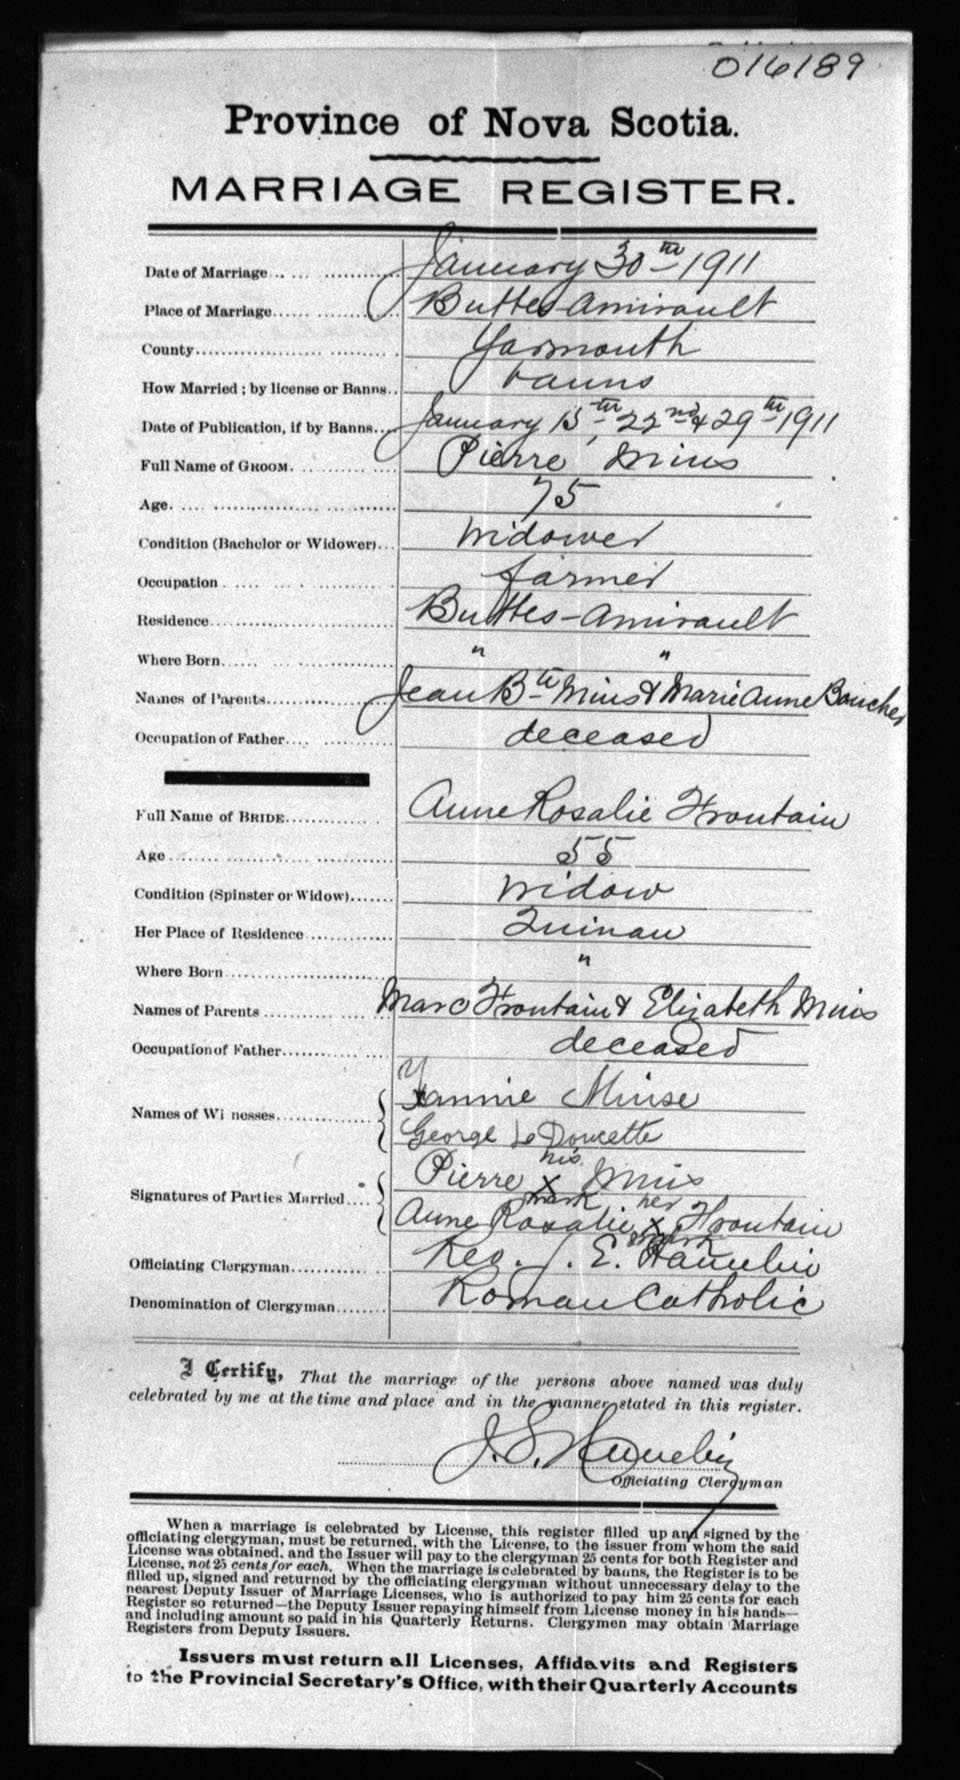 016189
Province of Nova Scotia.
MARRIAGE REGISTER.
Date of Marriage January 30th 1911
Place of Marriage Buttes-Amirault
County Yarmouth
How Married; by license or Banns banns
Date of Publication, if by Banns January 15th, 22nd & 29th 1911
Full Name of GROOM. Pierre Mius
Age. 75
Condition (Bachelor or Widower) widower
Occupation farmer
Residence Buttes-Amirault
Where Born " "
Names of Parents Jean Bte Mius & Marie Anne Boucher
Occupation of Father deceased
Full Name of BRIDE Anne Rosalie Frontain
Age 55
Condition (Spinster or Widow) widow
Her Place of Residence Quinan
Where Born "
Names of Parents Marc Frontain & Elizabeth Mius
Occupation of Father deceased
Names of Wi nesses Fannie Miuse
George Le Doucette
Signatures of Parties Married Pierre his X mark Mius
Anne Rosalie her X mark Frontain
Officiating Clergyman Rev. J. E.
Denomination of Clergyman Roman Catholic
I Certify, That the marriage of the persons above named was duly
celebrated by me at the time and place and in the manner stated in this register.
Officiating Clergyman
When a marriage is celebrated by License, this register filled up and signed by the
officiating clergyman, must be returned, with the License, to the issuer from whom the said
License was obtained, and the Issuer will pay to the clergyman 25 cents for both Register and
License, not 25 cents for each. When the marriage is celebrated by banns, the Register is to be
filled up, signed and returned by the officiating clergyman without unnecessary delay to the
nearest Deputy Issuer of Marriage Licenses, who is authorized to pay him 25 cents for each
Register so returned—the Deputy Issuer repaying himself from License money in his hands—
and including amount so paid in his Quarterly Returns. Clergymen may obtain Marriage
Registers from Deputy Issuers.
Issuers must return all Licenses, Affidavits and Registers
to the Provincial Secretary's Office, with their Quarterly Accounts